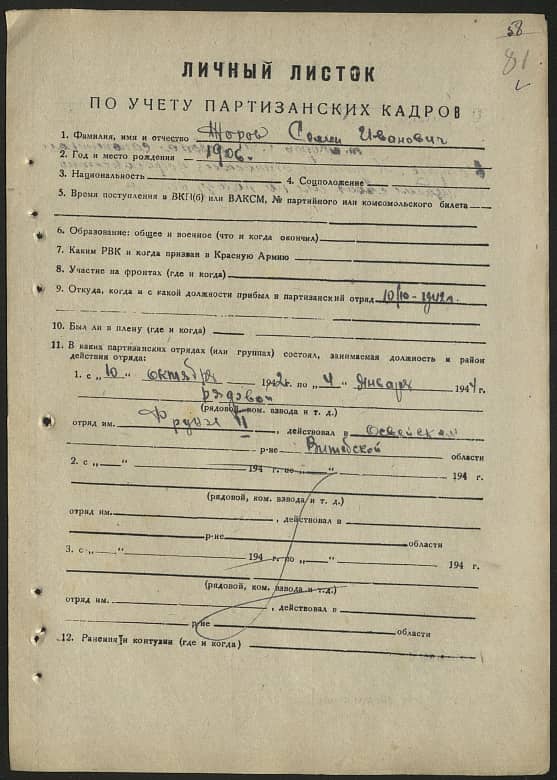 58
81
ЛИЧНЫЙ ЛИСТОК
ПО УЧЕТУ ПАРТИЗАНСКИХ КАДРОВ
1. Фамилия, имя и отчество Иванович
2. Год и место рождения 1906.
3. Национальность 4. Соцположение
5. Время поступления в ВКП(б) или ВЛКСМ, № партийного или комсомольского билета
6. Образование: общее и военное (что и когда окончил)
7. Каким РВК и когда призван в Красную Армию
8. Участие на фронтах (где и когда)
9. Откуда, когда и с какой должности прибыл в партизанский отряд 10/10-1942г.
10. Был ли в плену (где и когда)
11. В каких партизанских отрядах (или группах) состоял, занимаемая должность и район
действия отряда:
1. с „10" октября 1942г. по „4" января 1944г.
рядовой
(рядовой, ком. взвода и т. д.)
отряд им. Фрунзе II, действовал в Освейском
р-не Витебской области
2. с „ " 194 г. по „ " 194 г.
(рядовой, ком. взвода и т. д.)
отряд им. , действовал в
р-не области
3. с „ " 194 г. по „ " 194 г.
(рядовой, ком. взвода и т.д.)
отряд им. , действовал в
р-не области
12. Ранения и контузии (где и когда)